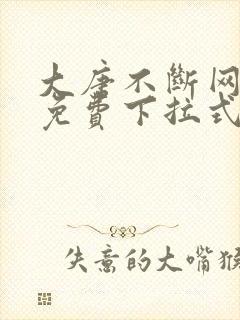 大唐不斷网
免費下拉式
失意的大嘴猴